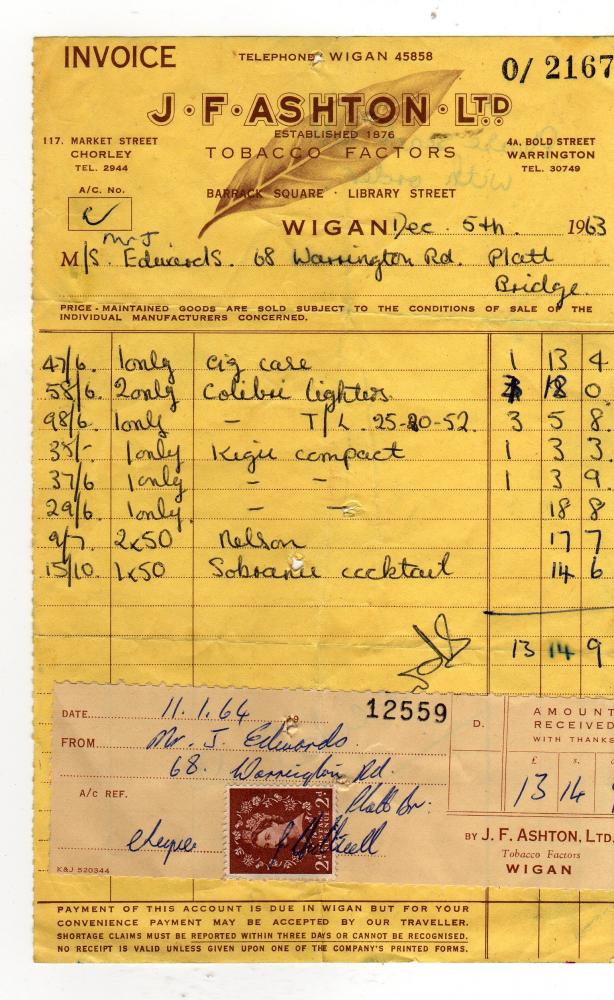 INVOICE
TELEPHONE WIGAN 45858
O/ 2167
J·F·ASHTON·LTD
ESTABLISHED 1876
TOBACCO FACTORS
117. MARKET STREET
CHORLEY
TEL. 2944
4A, BOLD STREET
WARRINGTON
TEL. 30749
A/C. No.
BARRACK SQUARE · LIBRARY STREET
WIGAN Dec. 5th. 1963
Mr J
M/S. Edwards. 68 Warrington Rd. Platt
Bridge.
PRICE-MAINTAINED GOODS ARE SOLD SUBJECT TO THE CONDITIONS OF SALE OF THE
INDIVIDUAL MANUFACTURERS CONCERNED.
47/6. 1 only cig case 1 13 4
58/6. 2 only Colibri lighters 18 0.
98/6. 1 only — T/L. 25-20-52. 3 5 8.
35/- 1 only Kigu compact 1 3 3.
37/6 1 only — — 1 3 9.
29/6. 1 only. — — 18 8
9/7. 2x50 Nelson 17 7
15/10. 1x50 Sobranie cocktail 14 6
13 14 9
DATE 11.1.64 19 12559
FROM Mr. J. Edwards.
68. Warrington Rd.
Platt Br.
A/C REF.
cheque
2D
2D
K&J 520344
D.
AMOUNT
RECEIVED
WITH THANKS
£ s.
13 14
BY J. F. ASHTON, LTD.
Tobacco Factors
WIGAN
PAYMENT OF THIS ACCOUNT IS DUE IN WIGAN BUT FOR YOUR
CONVENIENCE PAYMENT MAY BE ACCEPTED BY OUR TRAVELLER.
SHORTAGE CLAIMS MUST BE REPORTED WITHIN THREE DAYS OR CANNOT BE RECOGNISED.
NO RECEIPT IS VALID UNLESS GIVEN UPON ONE OF THE COMPANY'S PRINTED FORMS.